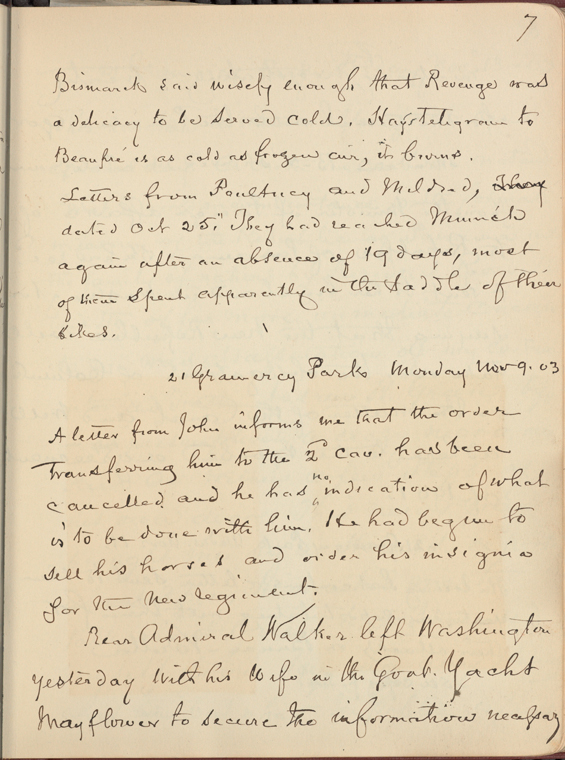 7
Bismarck said wisely enough that Revenge was
a delicacy to be served cold. Hay's telegram to
Beaupré is as cold as frozen air; it burns.
Letters from Poultney and Mildred, They
dated Oct 25." They had reached Munich
again after an absence of 19 days, most
of them spent apparently in the saddle of their
bikes.
21 Gramercy Park Monday Nov 9. 03
A letter from John informs me that the order
transferring him to the 2d cav. has been
cancelled and he has no indication of what
is to be done with him. He had begun to
sell his horses and order his insignia
for the new regiment.
Rear Admiral Walker left Washington
yesterday with his wife in the Govt. Yacht
Mayflower to secure the information necessary